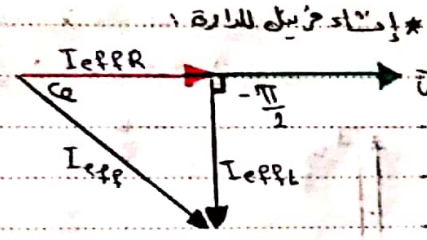 * إنشاء فرينل للدارة :
IeffR
φ
-π/2
Ieff
IeffL